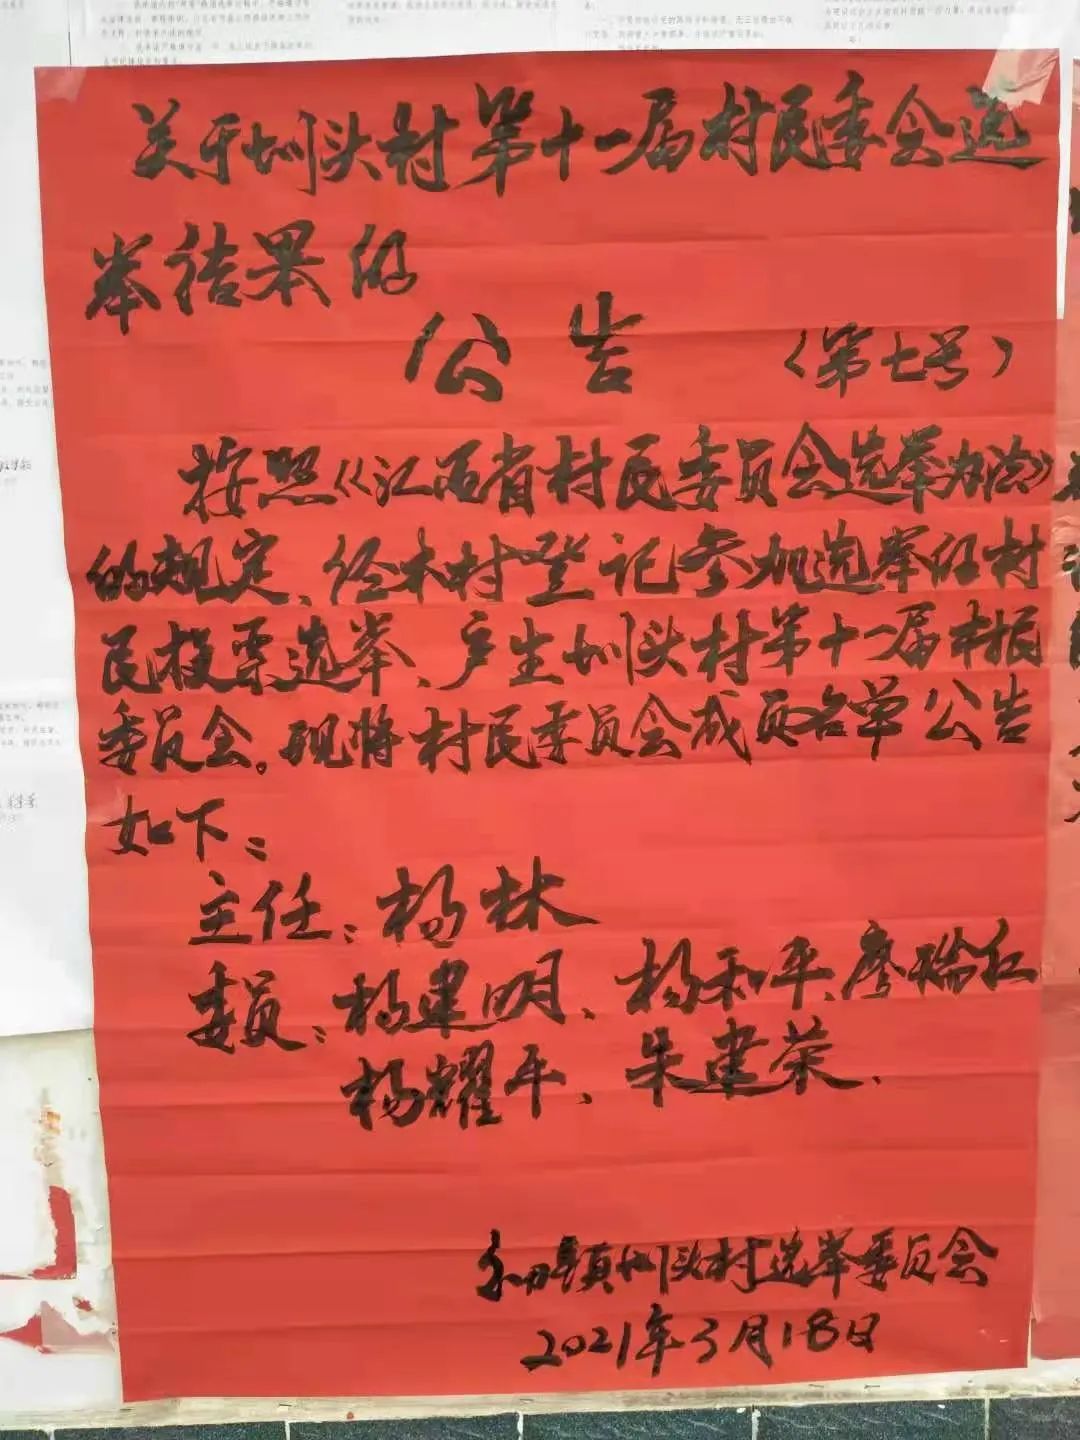 关于圳头村第十一届村民委会选
举结果的
公告（第七号）
按照《江西省村民委员会选举办法》
的规定、经本村登记参加选举的村
民投票选举、产生圳头村第十一届村民
委员会。现将村民委员会成员名单公告
如下：
主任：杨林
委员：杨建明、杨和平、廖瑞红
杨耀平、朱建荣、
镇圳头村选举委员会
2021年3月18日